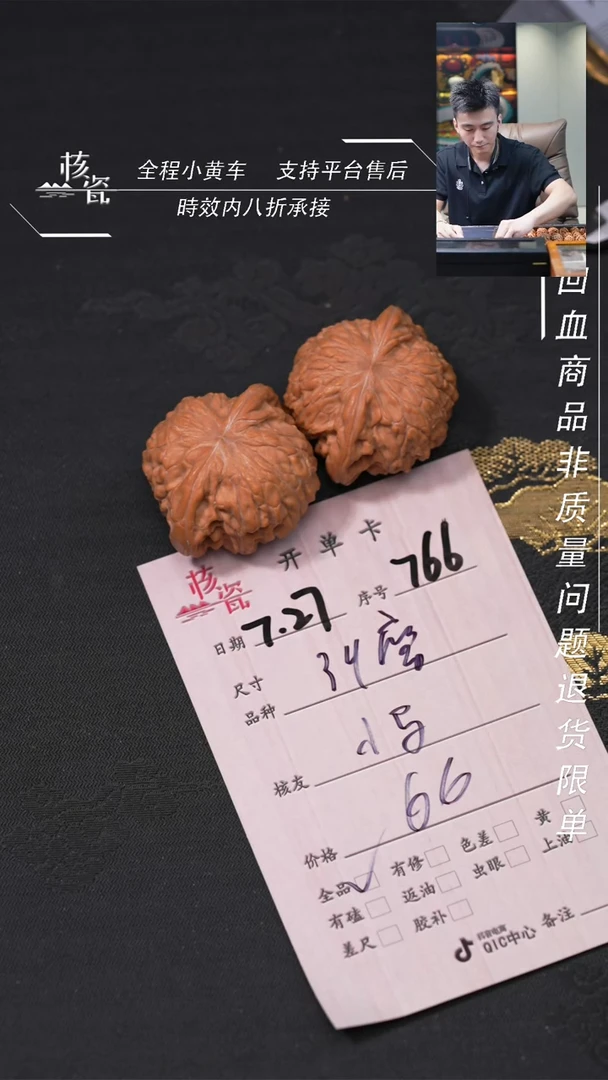 核瓷
全程小黄车 支持平台售后
時效内八折承接
回血商品非质量问题退货限单
核瓷
开单卡
日期 7.27 序号 766
尺寸 34
品种
核友
价格 66
全品 ✓ 有修 色差 黄
有磕 返油 虫眼 上油
差尺 胶补
抖音电商
QIC中心 备注